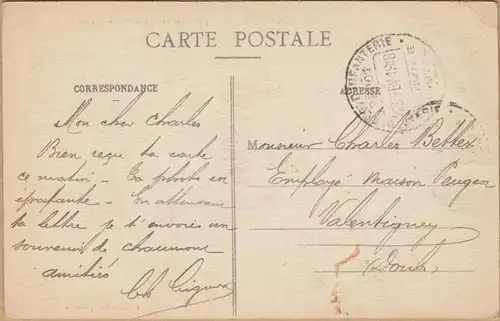 CARTE POSTALE
CORRESPONDANCE
Mon cher Charles
Bien reçu ta carte
ce matin - La photo est
épatante - En attendant
ta lettre je t'envoies un
souvenir de Chaumont
amitiés
Ch
ADRESSE
INFANTERIE
Monsieur Charles Bettex
Employé Maison Peugeot
Valentigney
(Doubs)